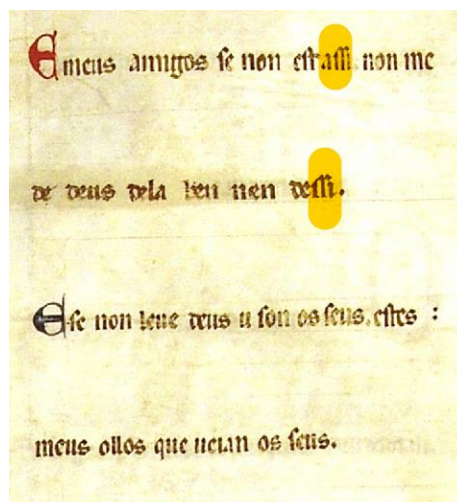 E meus amigos se non est assi. non me
de deus dela ben nen dessi.
E se non leue deus u son os seus. estes :
meus ollos que ueian os seus.